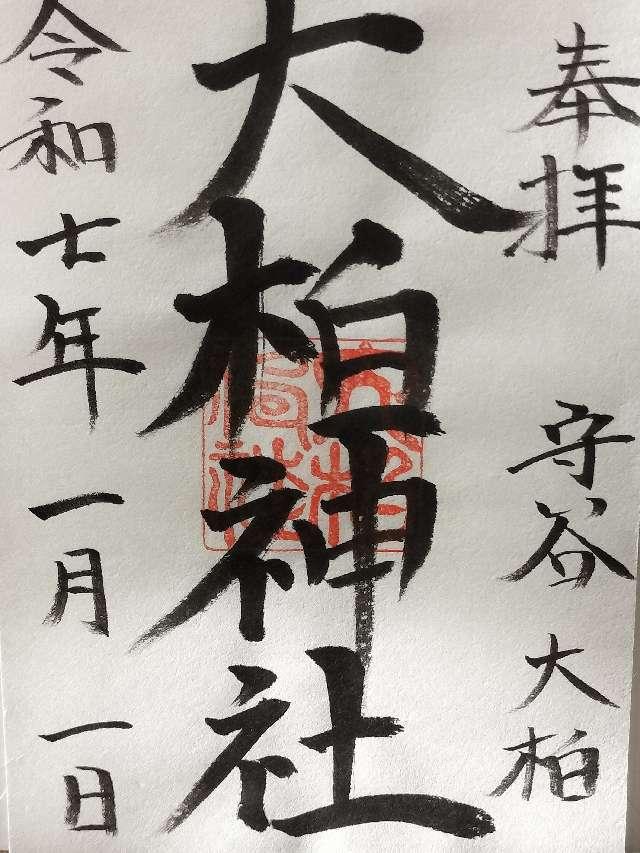 奉拝
守谷 大柏
大柏神社
令和七年 一月 一日